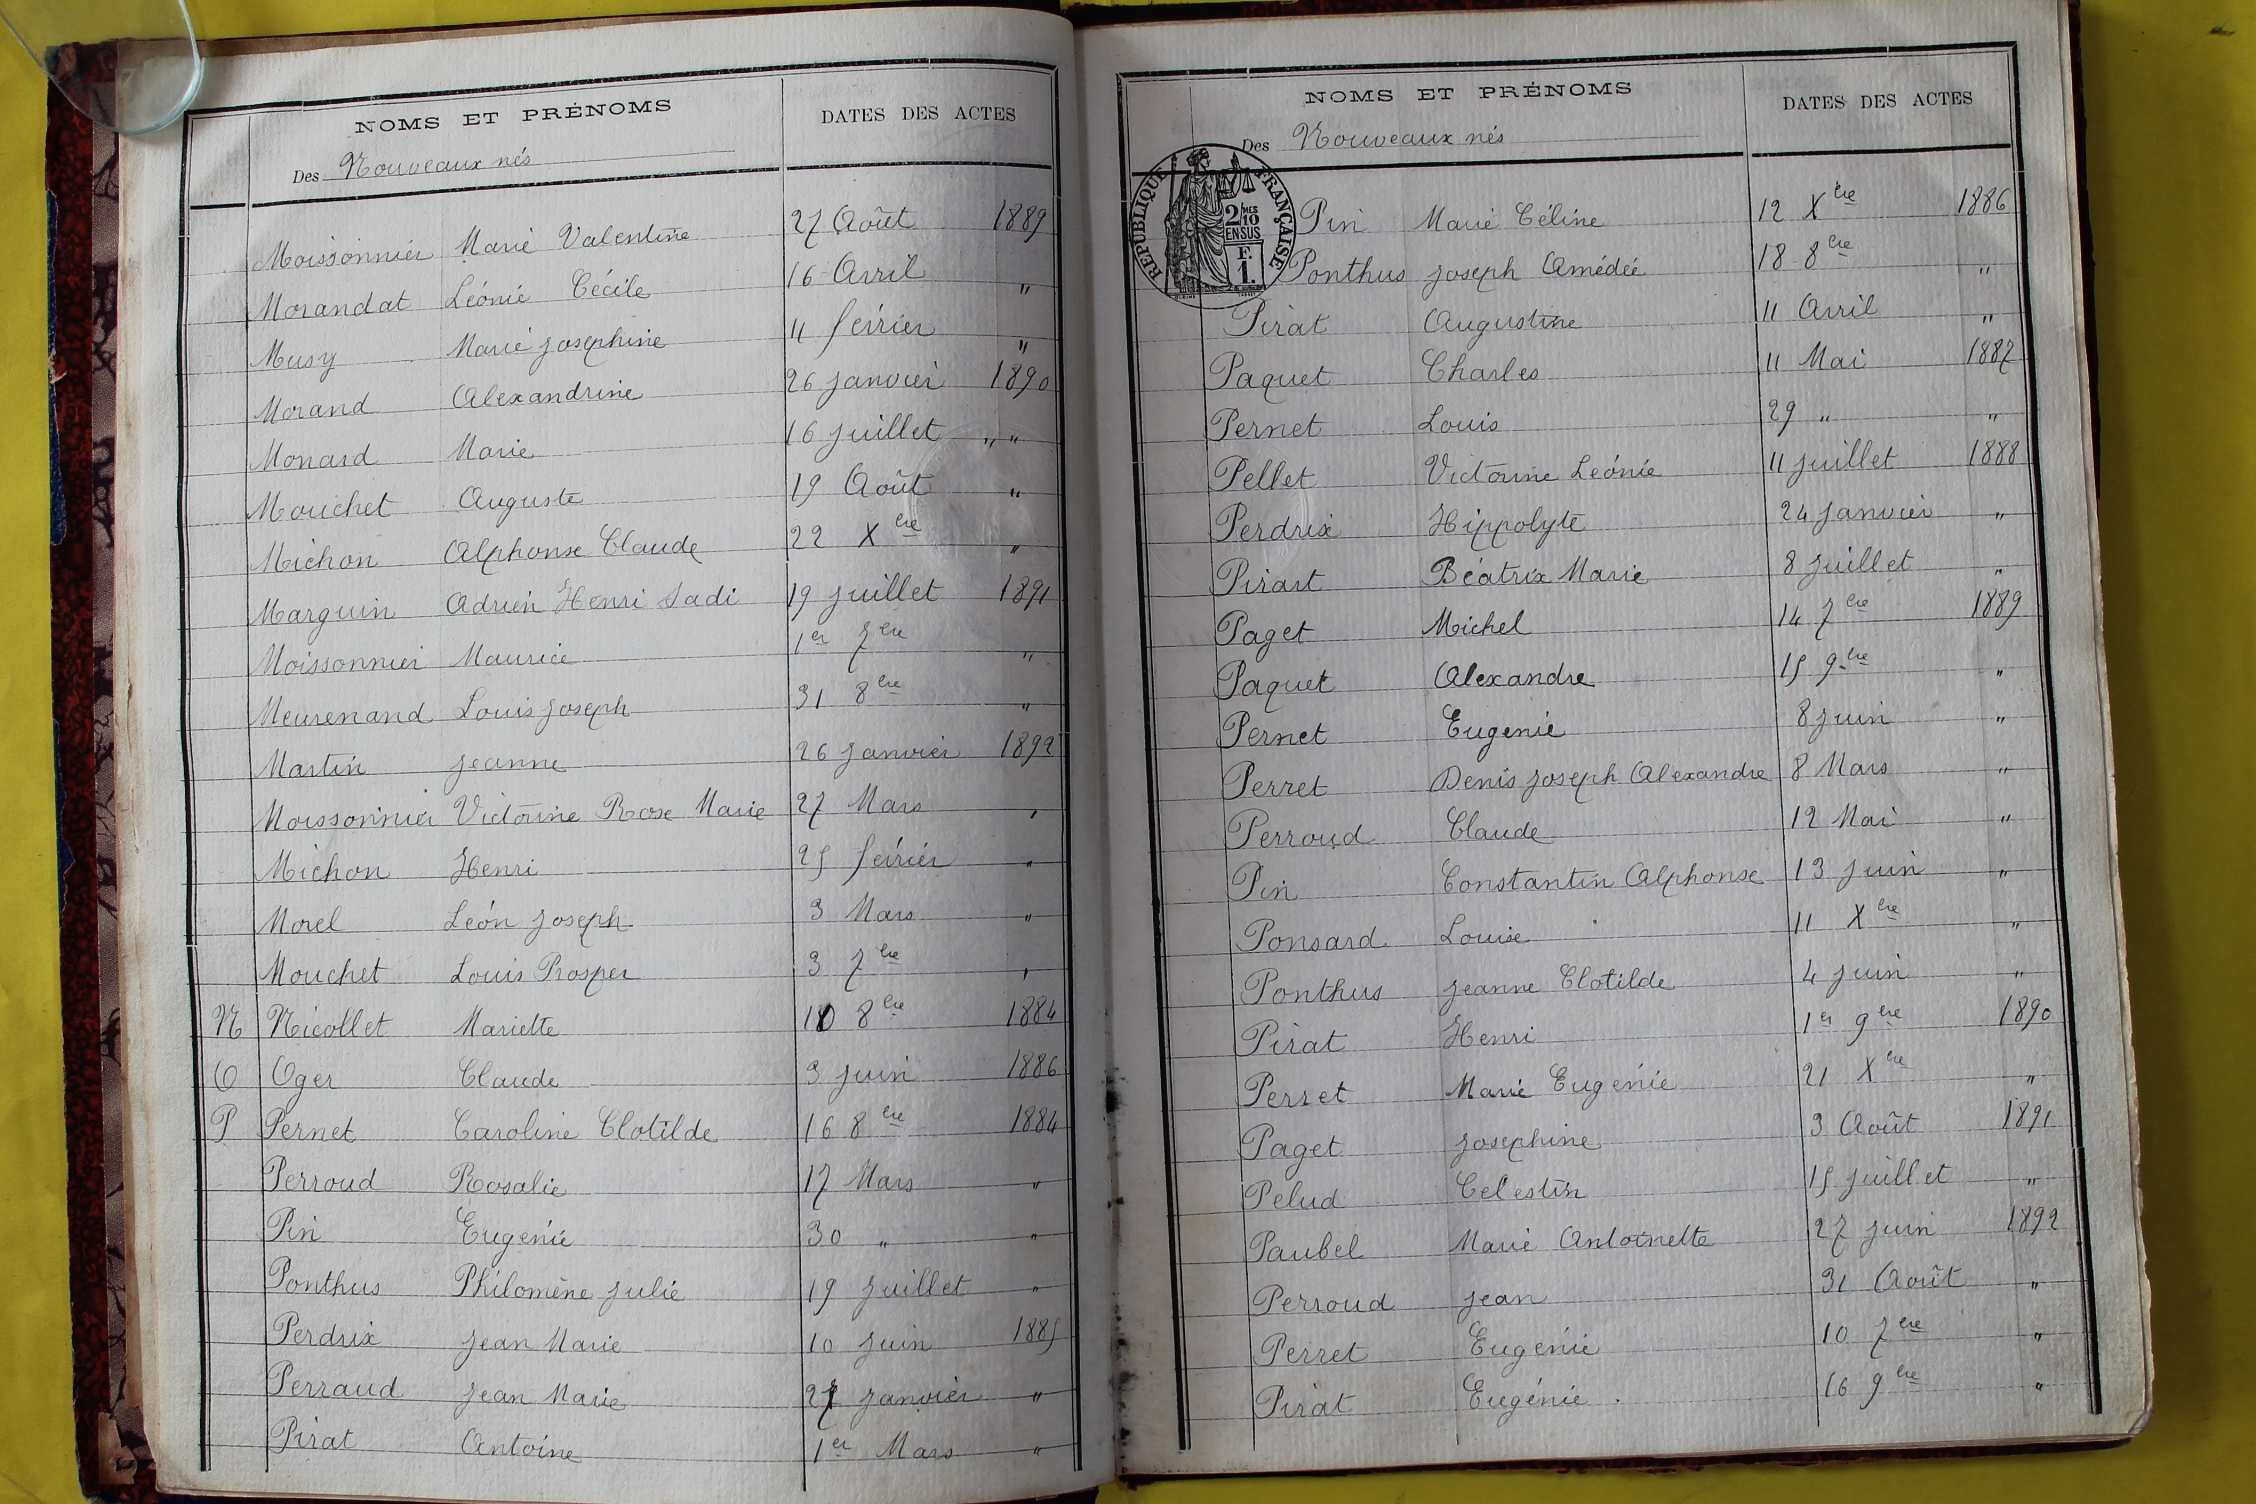 NOMS ET PRÉNOMS DATES DES ACTES
Des Nouveaux nés
Moissonnier Marie Valentine 27 Août 1889
Morandat Léonie Cécile 16 Avril "
Musy Marie Joséphine 11 février "
Morand Alexandrine 26 janvier 1890
Monard Marie 16 juillet " "
Mouchet Auguste 19 Août "
Michon Alphonse Claude 22 Xbre "
Marguin Adrien Henri Sadi 19 juillet 1891
Moissonnier Maurice 1er 7bre "
Meurenand Louis Joseph 31 8bre "
Martin Jeanne 26 janvier 1892
Moissonnier Victorine Rose Marie 27 Mars "
Michon Henri 25 février "
Morel Léon Joseph 3 Mars "
Mouchet Louis Prosper 3 7bre "
N Nicollet Mariette 10 8bre 1884
O Oger Claude 3 juin 1886
P Pernet Caroline Clotilde 16 8bre 1884
Perroud Rosalie 17 Mars "
Pin Eugénie 30 " "
Ponthus Philomène Julie 19 juillet "
Perdrix Jean Marie 10 juin 1885
Perraud Jean Marie 27 janvier "
Pirat Antoine 1er Mars "
NOMS ET PRÉNOMS DATES DES ACTES
Des Nouveaux nés
RÉPUBLIQUE FRANÇAISE
2/MES
10
EN SUS
F.
1.
Pin Marie Céline 12 Xbre 1886
Ponthus Joseph Amédée 18 8bre "
Pirat Augustine 11 Avril "
Paquet Charles 11 Mai 1887
Pernet Louis 29 " "
Pellet Victorine Léonie 11 juillet 1888
Perdrix Hippolyte 24 janvier "
Pirart Béatrix Marie 8 juillet "
Paget Michel 14 7bre 1889
Paquet Alexandre 15 9bre "
Pernet Eugenie 8 juin "
Perret Denis Joseph Alexandre 8 Mars "
Perroud Claude 12 Mai "
Pin Constantin Alphonse 13 juin "
Ponsard Louise 11 Xbre "
Ponthus Jeanne Clotilde 4 juin "
Pirat Henri 1er 9bre 1890
Perret Marie Eugénie 21 Xbre "
Paget Josephine 3 Août 1891
Pelud Celestin 15 juillet "
Paubel Marie Antoinette 27 juin 1892
Perroud Jean 31 Août "
Perret Eugénie 10 7bre "
Pirat Eugénie . 16 9bre "